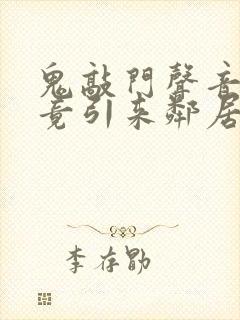 鬼敲門聲音
竟引來鄰居
李存勖